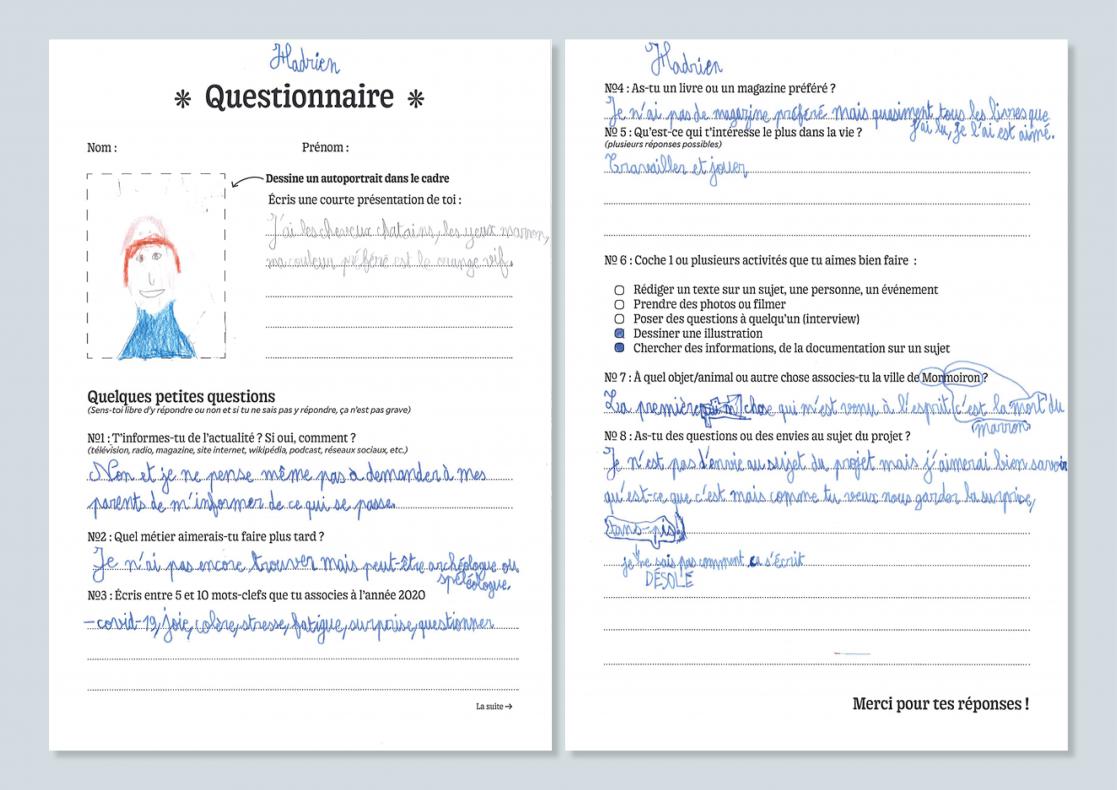 Hadrien
Questionnaire
Nom :
Prénom :
Dessine un autoportrait dans le cadre
Écris une courte présentation de toi :
J'ai les cheveux chatains, les yeux marron,
ma couleur préféré est le orange vif.
Quelques petites questions
(Sens-toi libre d'y répondre ou non et si tu ne sais pas y répondre, ça n'est pas grave)
Nº1 : T'informes-tu de l'actualité ? Si oui, comment ?
(télévision, radio, magazine, site internet, wikipédia, podcast, réseaux sociaux, etc.)
Non et je ne pense même pas à demander à mes
parents de m'informer de ce qui se passe.
Nº2 : Quel métier aimerais-tu faire plus tard ?
Je n'ai pas encore trouver mais peut-être archéologue ou
spéléologue.
Nº3 : Écris entre 5 et 10 mots-clefs que tu associes à l'année 2020
-covid-19, joie, colère, stresse, fatigue, surprise, questionner
La suite →
Hadrien
Nº4 : As-tu un livre ou un magazine préféré ?
Je n'ai pas de magazine préféré mais quasiment tous les livres que
j'ai lu, je l'ai est aimé.
Nº 5 : Qu'est-ce qui t'intéresse le plus dans la vie ?
(plusieurs réponses possibles)
Travailler et jouer
Nº 6 : Coche 1 ou plusieurs activités que tu aimes bien faire :
Rédiger un texte sur un sujet, une personne, un événement
Prendre des photos ou filmer
Poser des questions à quelqu'un (interview)
Dessiner une illustration
Chercher des informations, de la documentation sur un sujet
Nº 7 : À quel objet/animal ou autre chose associes-tu la ville de Mormoiron ?
La première chose qui m'est venu à l'esprit c'est la mort du
marron
Nº 8 : As-tu des questions ou des envies au sujet du projet ?
Je n'est pas d'envie au sujet du projet mais j'aimerai bien savoir
qu'est-ce que c'est mais comme tu veux nous garder la surprise,
tans-pis!
je ne sais pas comment ça s'écrit
DÉSOLÉ
Merci pour tes réponses !